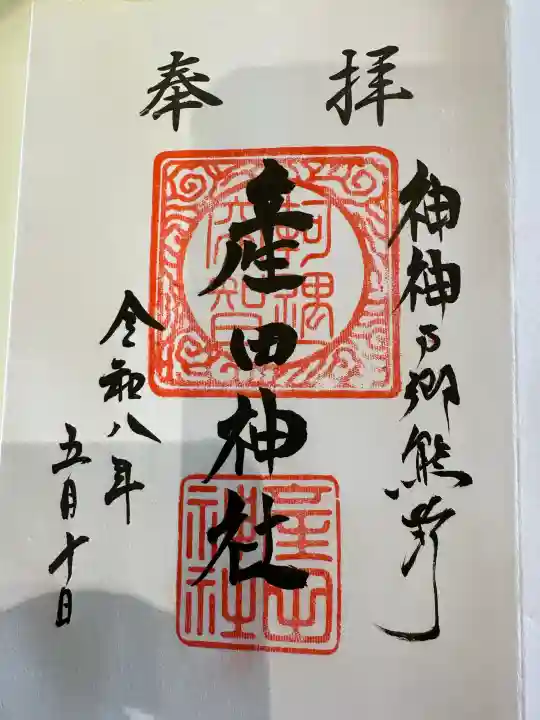 奉拝
神神の郷熊野
産田神社
産田神社
令和八年
五月十日